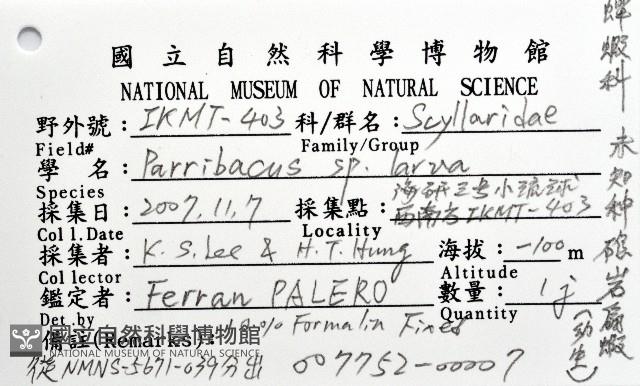 國立自然科學博物館
NATIONAL MUSEUM OF NATURAL SCIENCE
野外號：IKMT-403 科/群名：Scyllaridae
Field# Family/Group
學 名：Parribacus sp. larva
Species
海研三号小琉球
採集日：2007.11.7 採集點：西南方IKMT-403
Coll.Date Locality
採集者：K.S.Lee & H.T.Hung 海拔：-100 m
Collector Altitude
鑑定者：Ferran PALERO 數量：1j
Det.by Quantity
備註(Remarks): 10% Formalin Fixed
國立自然科學博物館
NATIONAL MUSEUM OF NATURAL SCIENCE
從NMNS-5671-039分出 007752-00007
蟬蝦科 未知种 硓岩扇蝦(幼生)